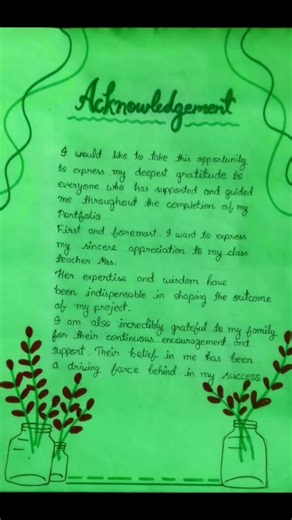 Acknowledgement
I would like to take this opportunity
to express my deepest gratitude to
everyone who has supported and guided
me throughout the completion of my
Portfolio.
First and foremost. I want to express
my sincere appreciation to my class
teacher Mrs.
Her expertise and wisdom have
been indispensable in shaping the outcome
of my project.
I am also incredibly grateful to my family
for their continuous encouragement and
support. Their belief in me has been
a driving force behind in my success